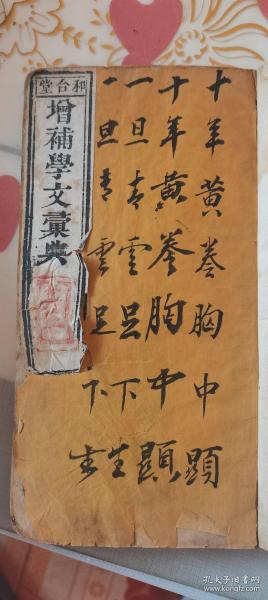 十年黄卷胸中顯
十年黄卷胸中顯
一旦青雲足下生
一旦青雲足下生
和合堂
增補學文彙典
孔夫子旧书网